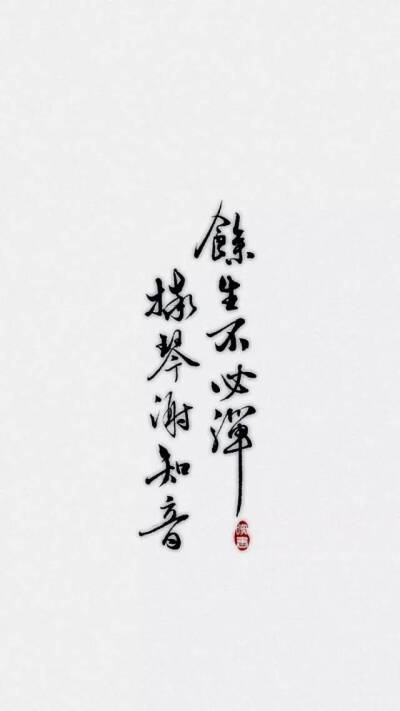 餘生不必彈
摔琴謝知音